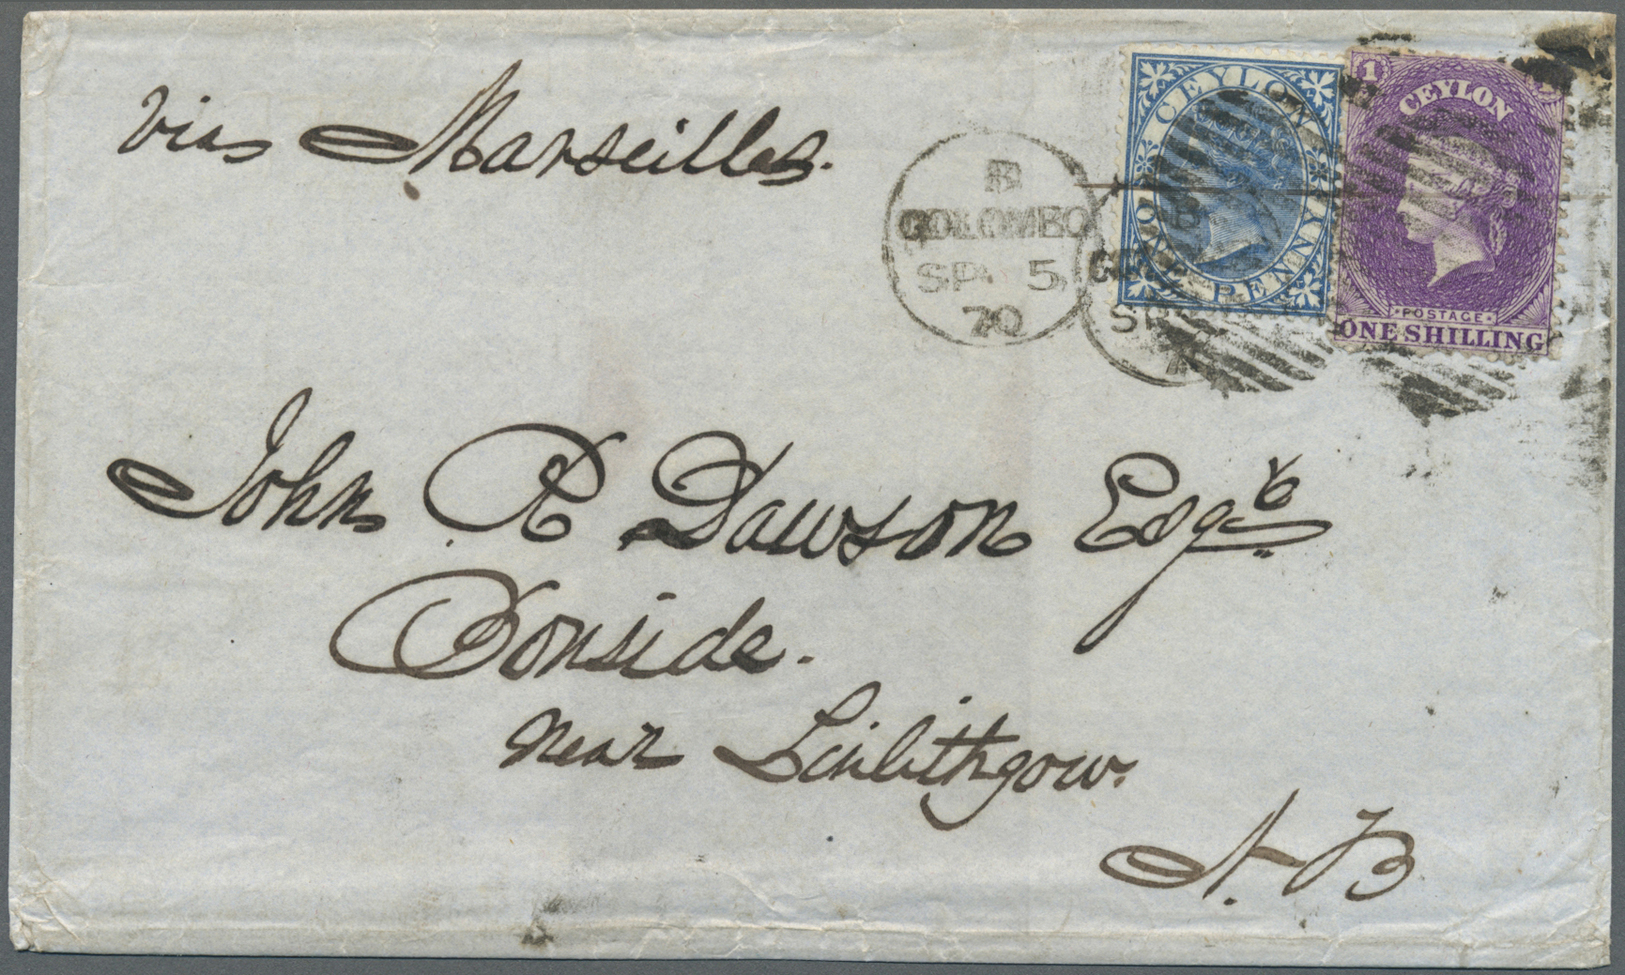 via Marseilles.
B
COLOMBO
SP. 5
70
CEYLON
ONE PENNY
1
CEYLON
POSTAGE
ONE SHILLING
John R Dawson Esqre
Bonside.
near Linlithgow.
N.B